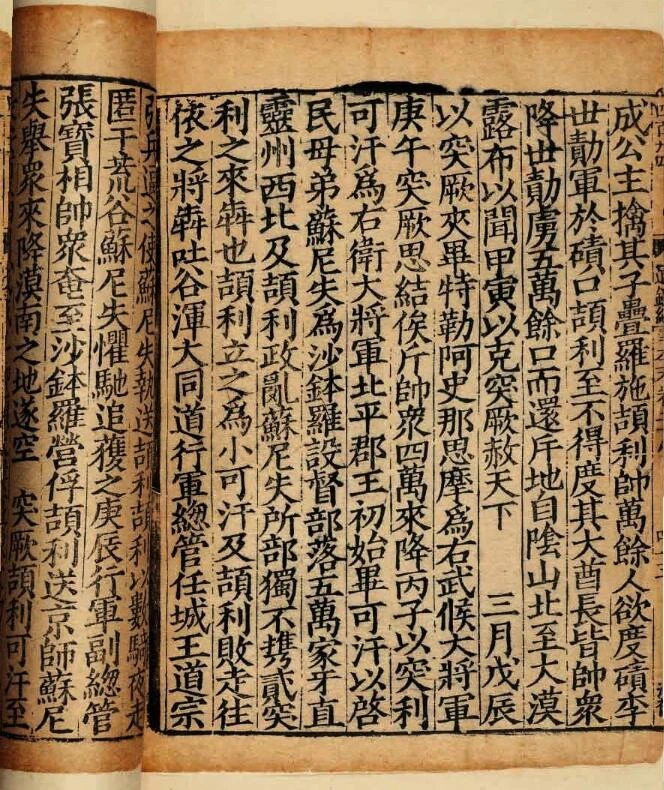 成公主擒其子疊羅施頡利帥萬餘人欲度磧李
世勣軍於磧口頡利至不得度其大酋長皆帥衆
降世勣虜五萬餘口而還斥地自陰山北至大漠
露布以聞甲寅以克突厥赦天下　三月戊辰
以突厥夾畢特勒阿史那思摩爲右武候大將軍
庚午突厥思結俟斤帥衆四萬來降丙子以突利
可汗爲右衛大將軍北平郡王初始畢可汗以啓
民母弟蘇尼失爲沙鉢羅設督部落五萬家牙直
靈州西北及頡利政亂蘇尼失所部獨不攜貳突
利之來犇也頡利立之爲小可汗及頡利敗走往
依之將犇吐谷渾大同道行軍總管任城王道宗
兵逼之使蘇尼失執送頡利頡利以數騎夜走
匿于荒谷蘇尼失懼馳追獲之庚辰行軍副總管
張寶相帥衆奄至沙鉢羅營俘頡利送京師蘇尼
失舉衆來降漠南之地遂空　突厥頡利可汗至